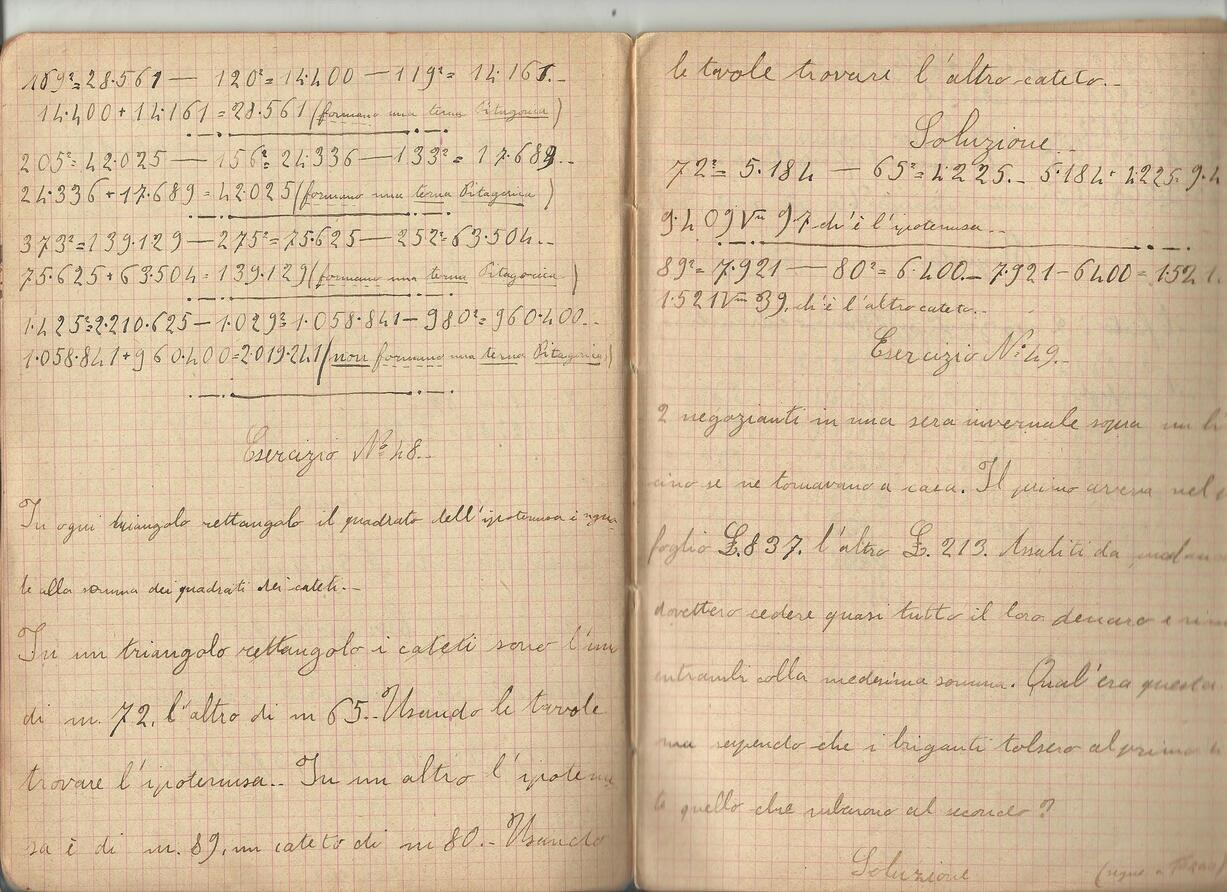 169²=28.561 — 120²=14.400 — 119²= 14.161.-
14.400 + 14.161 = 28.561 (formano una terna Pitagorica)
205²=42.025 — 156²=24.336 — 133²= 17.689..-
24.336 + 17.689 = 42.025 (formano una terna Pitagorica)
373²=139.129 — 275²=75.625 — 252²=63.504..-
75.625 + 63.504 = 139.129 (formano una terna Pitagorica)
1.425²=2.210.625 — 1.029²=1.058.841 — 980²= 960.400..-
1.058.841 + 960.400 = 2.019.241 (non formano una terna Pitagorica)
Esercizio Nº 48..-
In ogni triangolo rettangolo il quadrato dell'ipotenusa è ugua-
le alla somma dei quadrati dei cateti.-
In un triangolo rettangolo i cateti sono l'uno
di m. 72, l'altro di m 65.- Usando le tavole
trovare l'ipotenusa.. In un altro l'ipotenu
sa è di m. 89, un cateto di m 80.- Usando
le tavole trovare l'altro cateto.-
Soluzione
72²= 5.184 — 65²=4.225.- 5.184 + 4.225= 9.4
9.409 V— 97 ch'è l'ipotenusa..-
89²= 7.921 — 80²= 6.400.- 7.921 - 6400 = 1.521
1.521 V— 39, ch'è l'altro cateto..-
Esercizio Nº 49.-
2 negozianti in una sera invernale sopra un
cino se ne tornavano a casa. Il primo aveva nel
foglio £.837. l'altro £.213. Assaliti da
dovettero cedere quasi tutto il loro denaro e
entrambi colla medesima somma. Qual'era questa
ma sapendo che i briganti tolsero al primo
quello che rubarono al secondo?
Soluzione